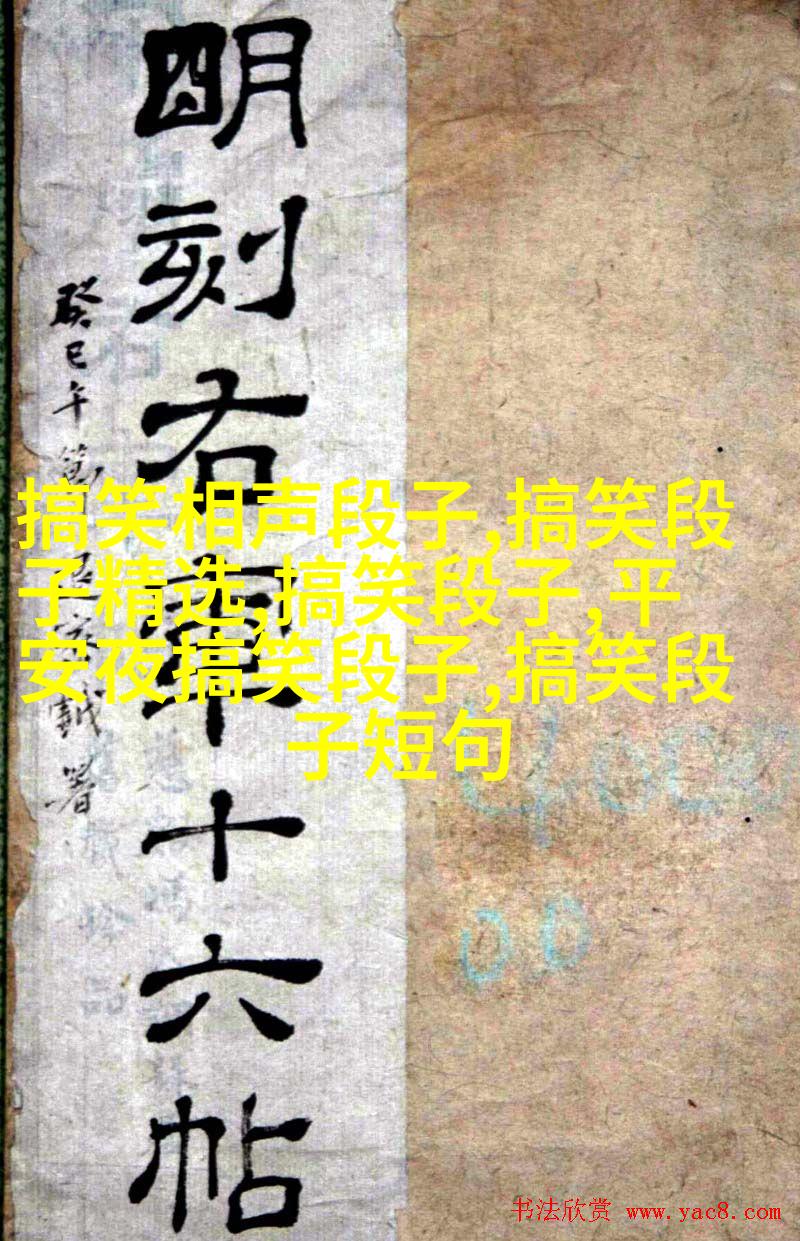 朙刻右軍十六帖
癸巳年
署
搞笑相声段子,搞笑段
子精选,搞笑段子,平
安夜搞笑段子,搞笑段
子短句
书法欣赏 www.yac8.com